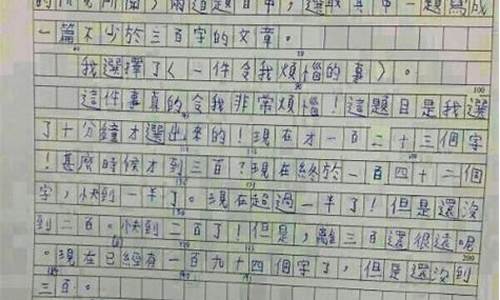 的所見所聞，兩這題目中，選取其中一題寫成
一篇不少於三百字的文章。
我選擇了〈一件令我煩惱的事〉。
100
這件事真的令我非常煩惱！這題目是我選
了十分鐘才選出來的！現在才一百二十三個字
！甚麼時候才到三百？現在終於一百四十二個
字，快到一半了。現在超過一半了！但是還沒
到二百。快到二百了！但是，離三百還很遠呢
200
。現在已經有一百九十四個字了，但是還沒到
三百。